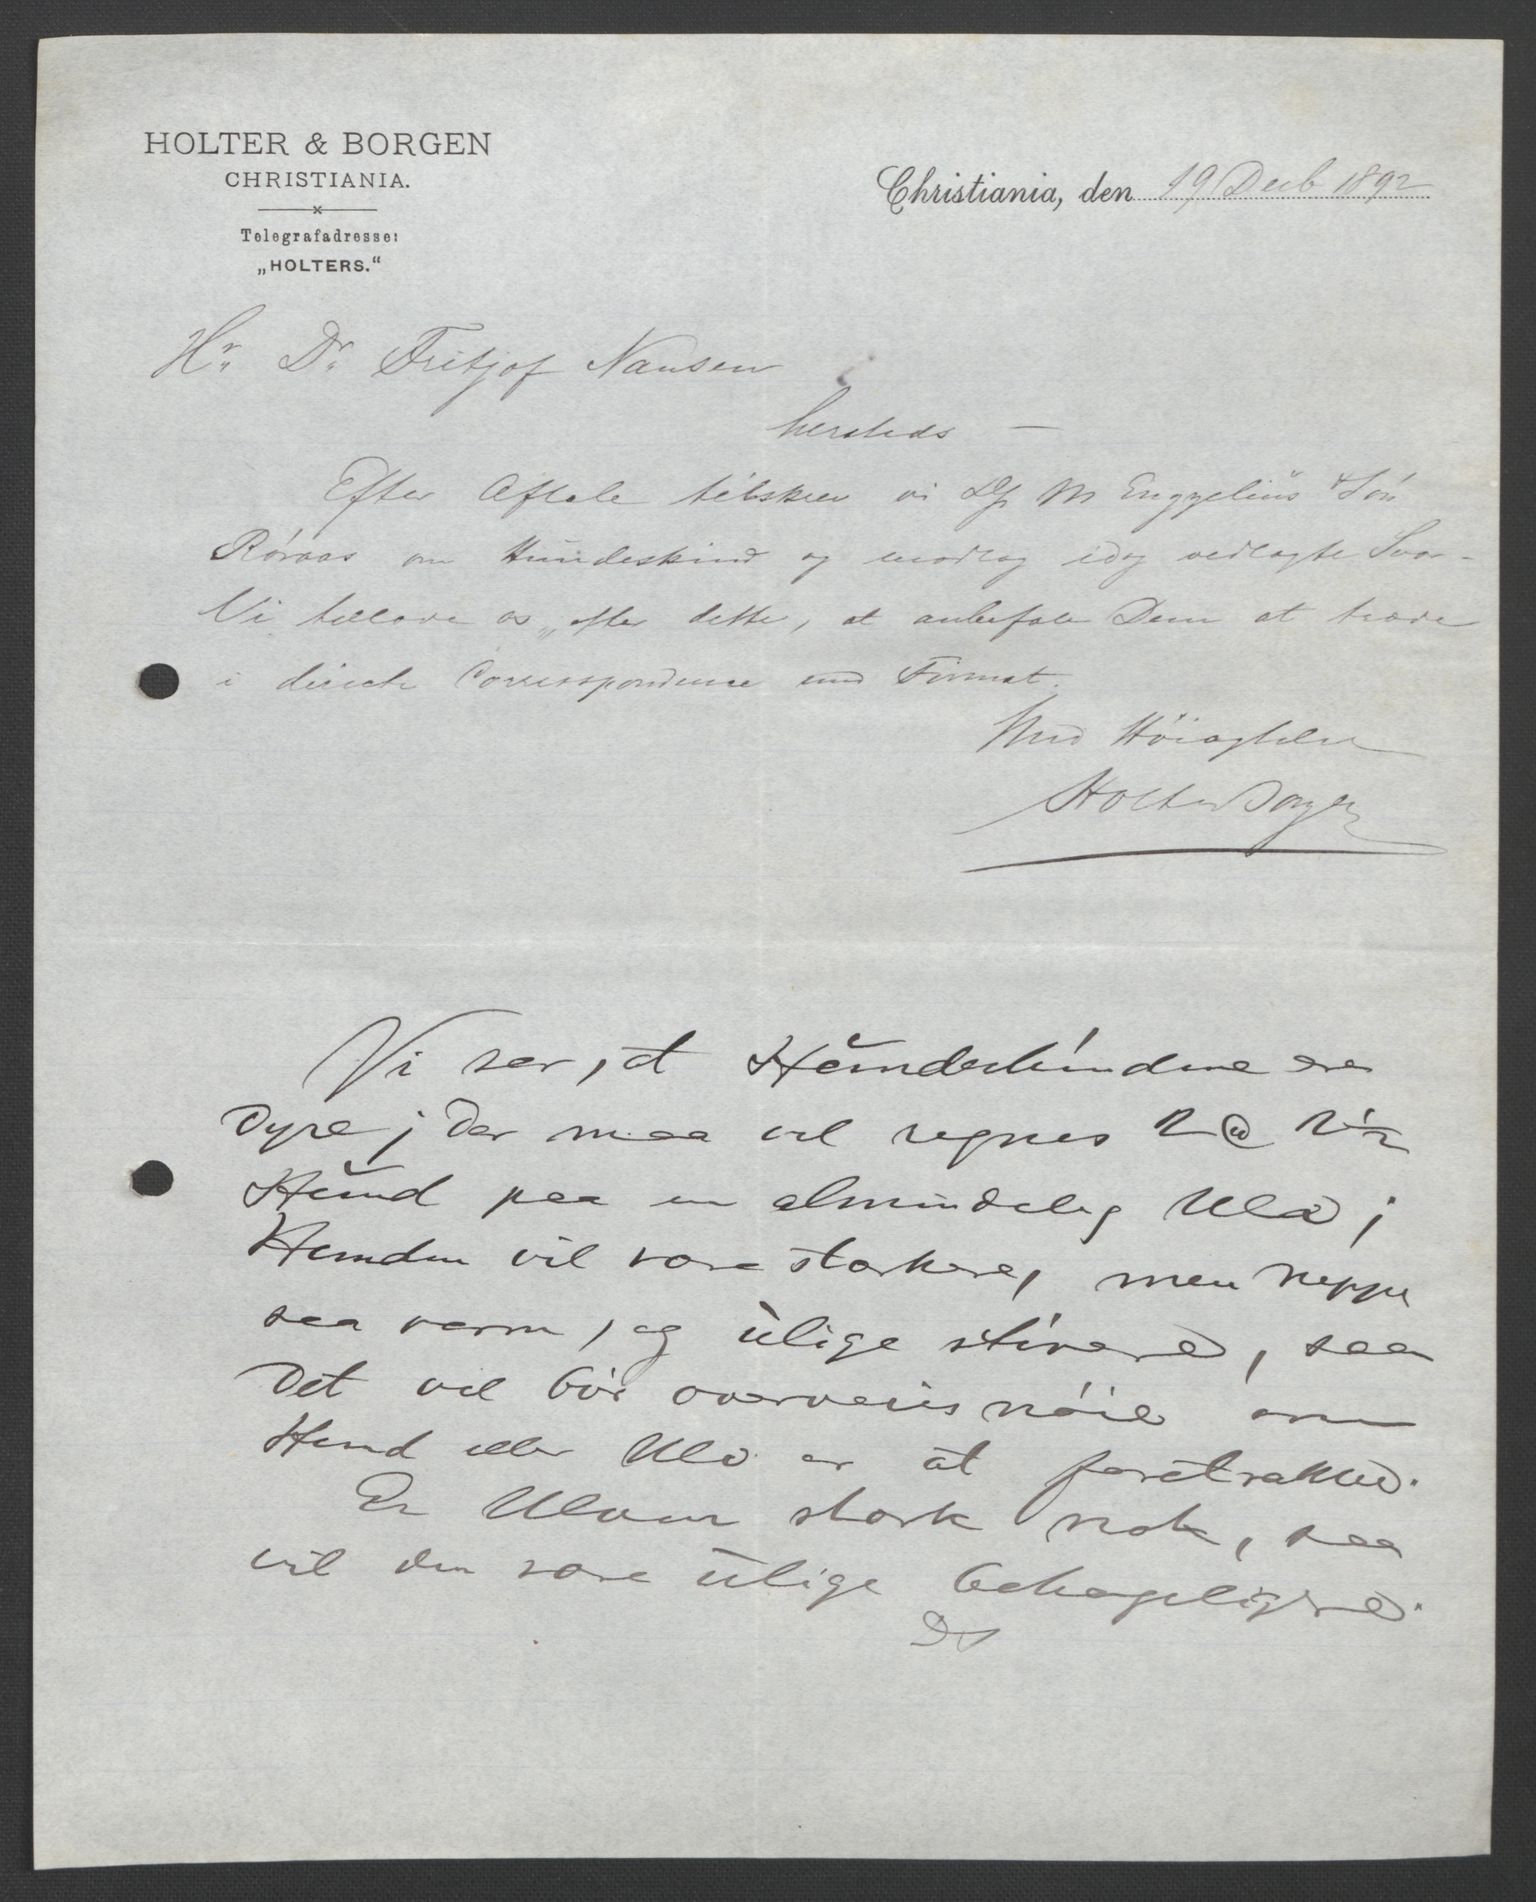 HOLTER & BORGEN
CHRISTIANIA.
Telegrafadresse:
„HOLTERS.“
Christiania, den 19 Decb 1892
Hr. Dr. Fritjof Nansen
hersteds —
Efter Aftale tilskrev vi M Engzelius & Sön
Röraas om Hundeskind og modtog idag vedlagte Svar -
Vi tillade os, efter dette, at anbefale Dem at træde
i directe Correspondence med Firmaet.
Med Höiagtelse
Holter Borgen
Vi ser, at Hundeskindene ere
dyre; der maa vel regnes 2 @ 2½
Hund paa en almindelig Ulv;
Hunden vil være stærkere, men neppe
saa varm, og ulige stivere, saa
det vel bör overveies nöie om
Hund eller Ulv er at foretrække.
Er Ulven stærk nok, saa
vil den være ulige behageligere.
DS